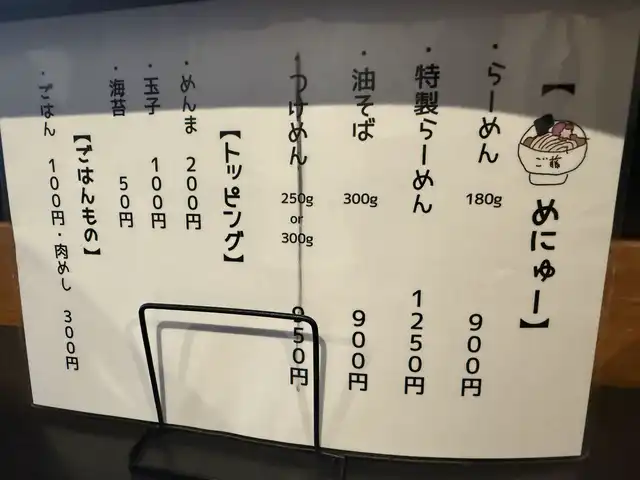 【 めにゅー】
・らーめん 180g 900円
・特製らーめん 1250円
・油そば 300g 900円
つけめん 250g or 300g 950円
【トッピング】
・めんま 200円
・玉子 100円
・海苔 50円
【ごはんもの】
・ごはん 100円・肉めし 300円